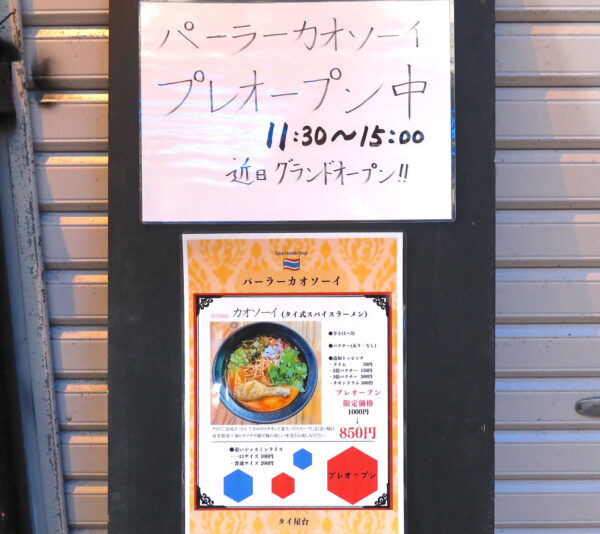 パーラーカオソーイ
プレオープン中
11:30〜15:00
近日グランドオープン!!
Spice Noodle Shop
パーラーカオソーイ
カオソーイ (タイ式スパイスラーメン)
●パクチー(あり・なし)
●追加トッピング
・ライム 50円
・2倍パクチー 150円
・3倍パクチー 300円
・チキンドラム 300円
プレオープン
限定価格
1000円
↓
850円
●追いジャスミンライス
・一口サイズ 100円
・普通サイズ 200円
プレオープン
タイ屋台